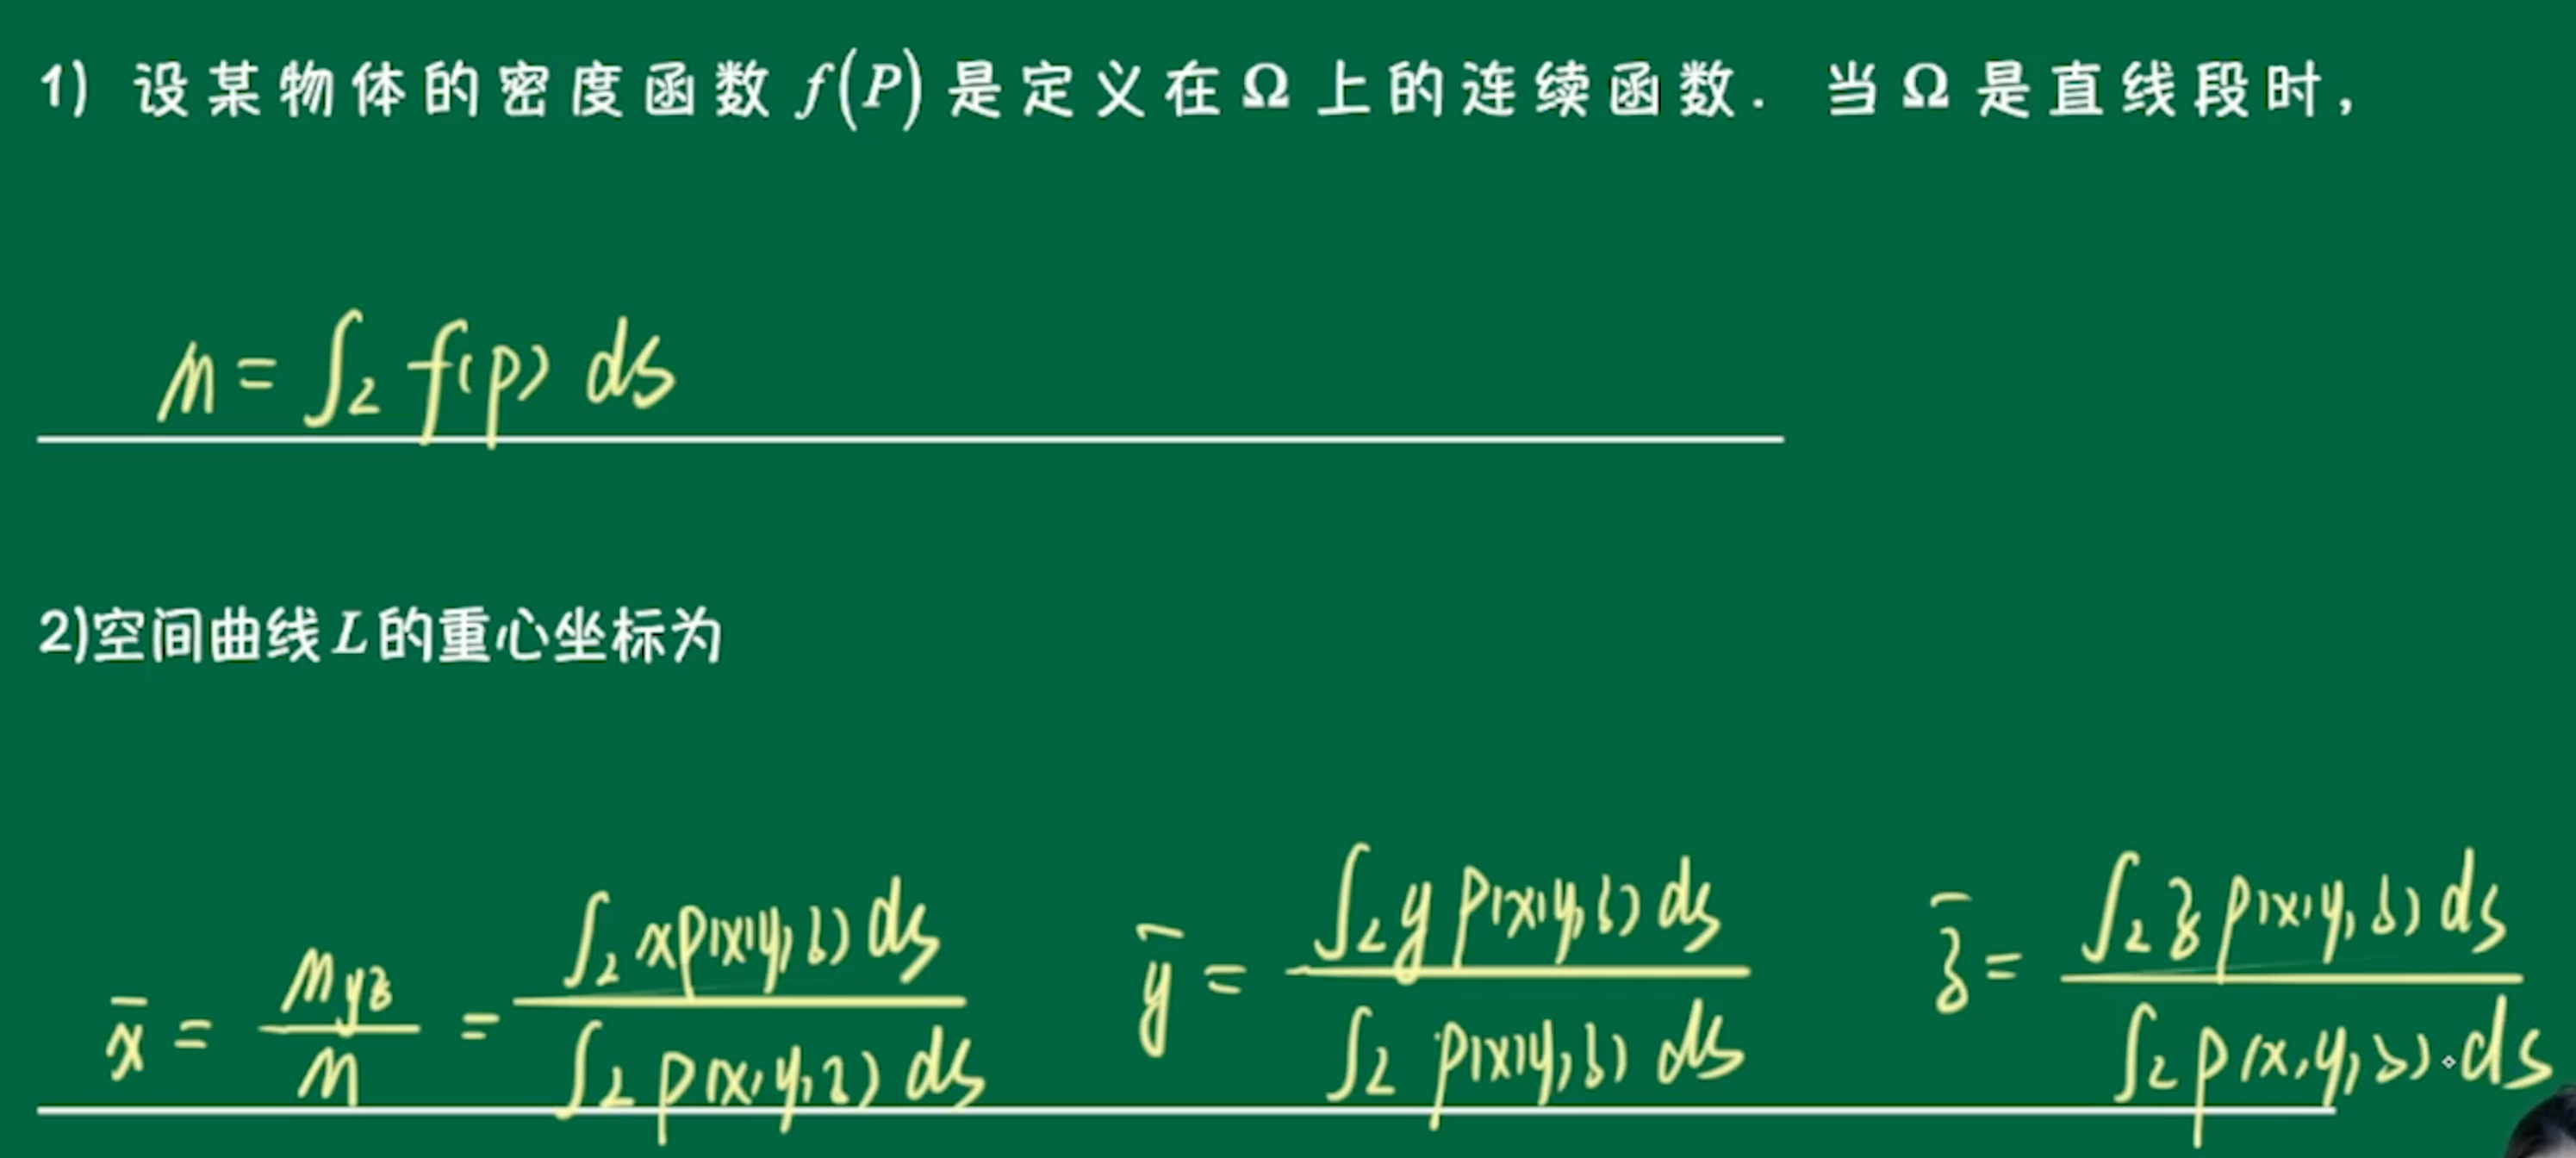 1) 设某物体的密度函数 f(P) 是定义在 Ω 上的连续函数. 当 Ω 是直线段时,
M = ∫_L f(p) ds
2)空间曲线L的重心坐标为
x̄ = M_yz / M = ∫_L xρ(x,y,z) ds / ∫_L ρ(x,y,z) ds   ȳ = ∫_L y ρ(x,y,z) ds / ∫_L ρ(x,y,z) ds   z̄ = ∫_L z ρ(x,y,z) ds / ∫_L ρ(x,y,z) ds